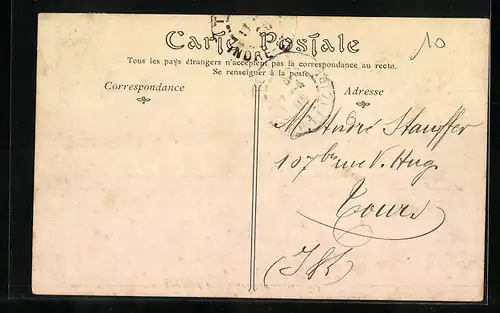 10
Carte Postale
Tous les pays étrangers n'acceptent pas la correspondance au recto.
Se renseigner à la poste.
INDRE
Correspondance
Adresse
Mr André Stauffer
107 bis rue V. Hug
Tours
I&L